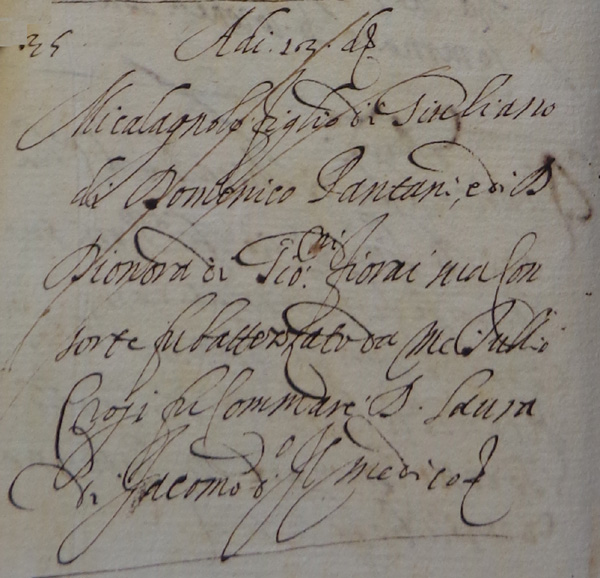 35 Adi 23. dº
Micalagnolo figlio di Giuliano
di Domenico Pantani, e di D
Dionora di Gio: fiorai sua Con
sorte fu battezzato da me Tullio
fu Commare D. Laura
di Jacomo d. Jl medico